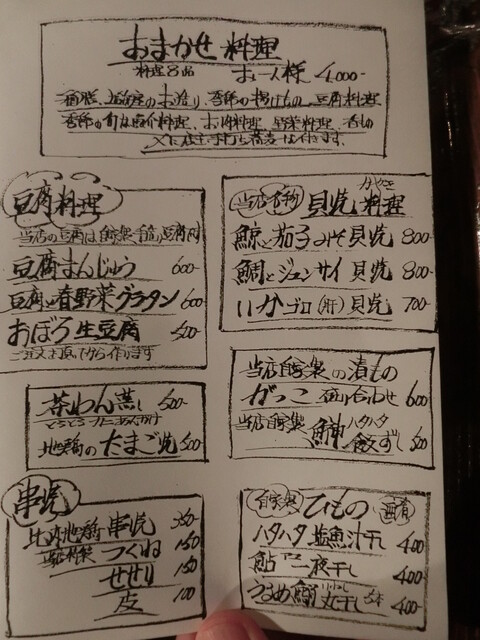 おまかせ 料理
料理8品 お一人様 4,000-
お造り、季節の揚げもの、豆腐料理
季節の旬は魚介料理、お肉料理、野菜料理、香もの
手打ち蕎麦は付きます。
豆腐料理
当店の豆腐は自家製手造り豆腐
豆腐まんじゅう 600-
豆腐と春野菜グラタン 600-
おぼろ生豆腐 500-
ご注文を頂いてから作ります
茶わん蒸し 500-
とろとろ カニあんかけ
地鶏のたまご焼 500-
串焼
比内地鶏 串焼 350-
当店自家製 つくね 150
せせり 150
皮 100
当店名物 貝焼料理
かやき
鯨と茄子みそ貝焼 800-
鯛とジュンサイ貝焼 800-
いかゴロ(肝)貝焼 700-
当店自家製の漬もの
がっこ 盛り合わせ 600
当店自家製 鰰ハタハタ飯ずし 500
自家製 ひもの
ハタハタ塩魚汁干し 400
鮎一夜干し 400-
うるめ鰯丸干し 5本 400-